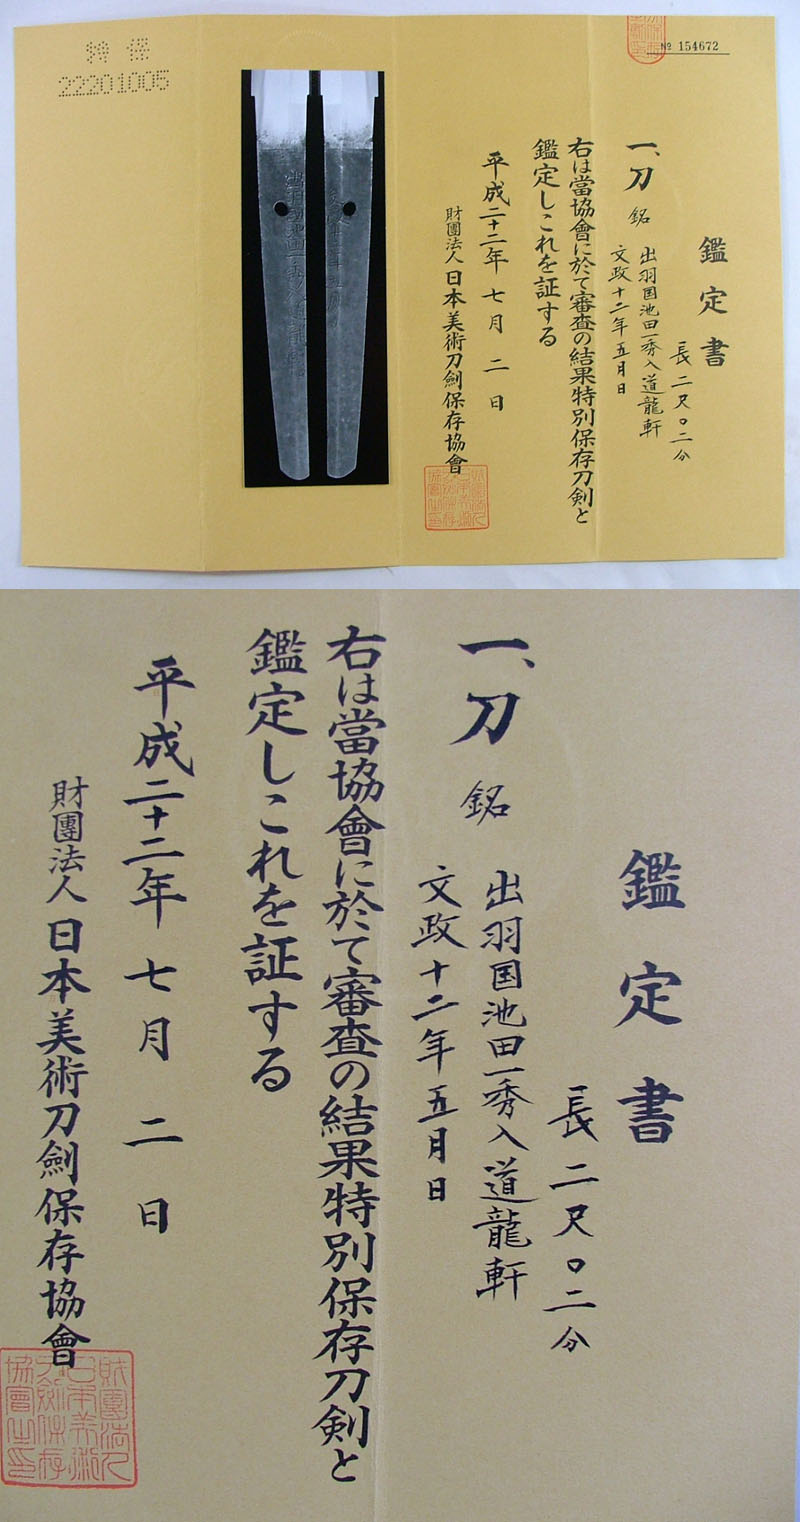 特保
22201005
№ 154672
鑑定書
長二尺〇二分
一、刀 銘 出羽国池田一秀入道龍軒
文政十二年五月日
右は當協會に於て審査の結果特別保存刀剣と
鑑定しこれを証する
平成二十二年 七月 二日
財團法人日本美術刀劍保存協會
鑑定書
長二尺〇二分
一、刀 銘 出羽国池田一秀入道龍軒
文政十二年五月日
右は當協會に於て審査の結果特別保存刀剣と
鑑定しこれを証する
平成二十二年 七月 二日
財團法人日本美術刀劍保存協會
財團法人日本美術刀劍保存協會之印